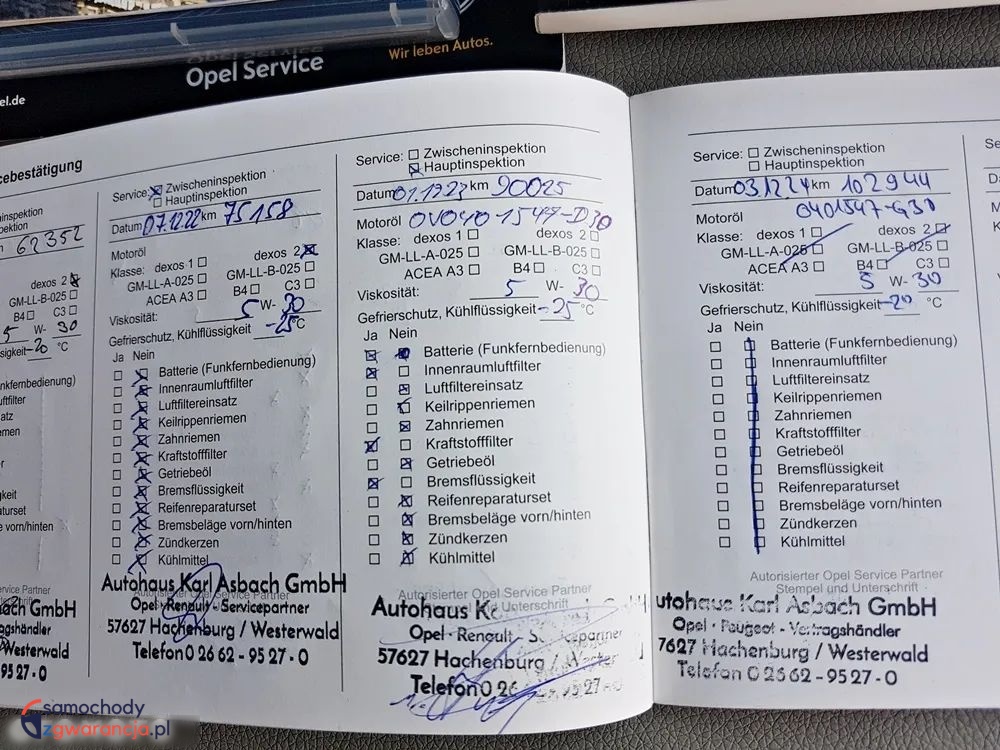 Opel Service
Wir leben Autos.
el.de
cebestätigung
ninspektion
nspektion
62352
dexos 2
GM-LL-B-025
B4 C3
5 W- 30
sigkeit -20 °C
nkfernbedienung)
uftfilter
satz
emen
r
gkeit
aturset
e vorn/hinten
ervice Partner
bach GmbH
agshändler
Westerwald
95 27-0
Service: Zwischeninspektion
Hauptinspektion
Datum 07.12.22 km 75158
Motoröl
Klasse: dexos 1 dexos 2
GM-LL-A-025 GM-LL-B-025
ACEA A3 B4 C3
Viskosität: 5 W- 30
Gefrierschutz, Kühlflüssigkeit -25 °C
Ja Nein
Batterie (Funkfernbedienung)
Innenraumluftfilter
Luftfiltereinsatz
Keilrippenriemen
Zahnriemen
Kraftstofffilter
Getriebeöl
Bremsflüssigkeit
Reifenreparaturset
Bremsbeläge vorn/hinten
Zündkerzen
Kühlmittel
Autohaus Karl Asbach GmbH
Opel-Renault-Servicepartner
57627 Hachenburg / Westerwald
Telefon 0 26 62 - 95 27 - 0
Service: Zwischeninspektion
Hauptinspektion
Datum 01.12.23 km 90025
Motoröl OV0401547-D30
Klasse: dexos 1 dexos 2
GM-LL-A-025 GM-LL-B-025
ACEA A3 B4 C3
Viskosität: 5 W- 30
Gefrierschutz, Kühlflüssigkeit -25 °C
Ja Nein
Batterie (Funkfernbedienung)
Innenraumluftfilter
Luftfiltereinsatz
Keilrippenriemen
Zahnriemen
Kraftstofffilter
Getriebeöl
Bremsflüssigkeit
Reifenreparaturset
Bremsbeläge vorn/hinten
Zündkerzen
Kühlmittel
Autorisierter Opel Service Partner
Stempel und Unterschrift
Autohaus K
Opel-Renault-Servicepartner
57627 Hachenburg / Wester
Telefon 0 26 95 27-0
Service: Zwischeninspektion
Hauptinspektion
Datum 03.12.24 km 102944
Motoröl 0401547-G30
Klasse: dexos 1 dexos 2
GM-LL-A-025 GM-LL-B-025
ACEA A3 B4 C3
Viskosität: 5 W- 30
Gefrierschutz, Kühlflüssigkeit -20 °C
Ja Nein
Batterie (Funkfernbedienung)
Innenraumluftfilter
Luftfiltereinsatz
Keilrippenriemen
Zahnriemen
Kraftstofffilter
Getriebeöl
Bremsflüssigkeit
Reifenreparaturset
Bremsbeläge vorn/hinten
Zündkerzen
Kühlmittel
Autorisierter Opel Service Partner
Stempel und Unterschrift
utohaus Karl Asbach GmbH
Opel - Peugeot - Vertragshändler
7627 Hachenburg / Westerwald
Telefon 0 26 62 - 95 27 - 0
samochody
zgwarancja.pl